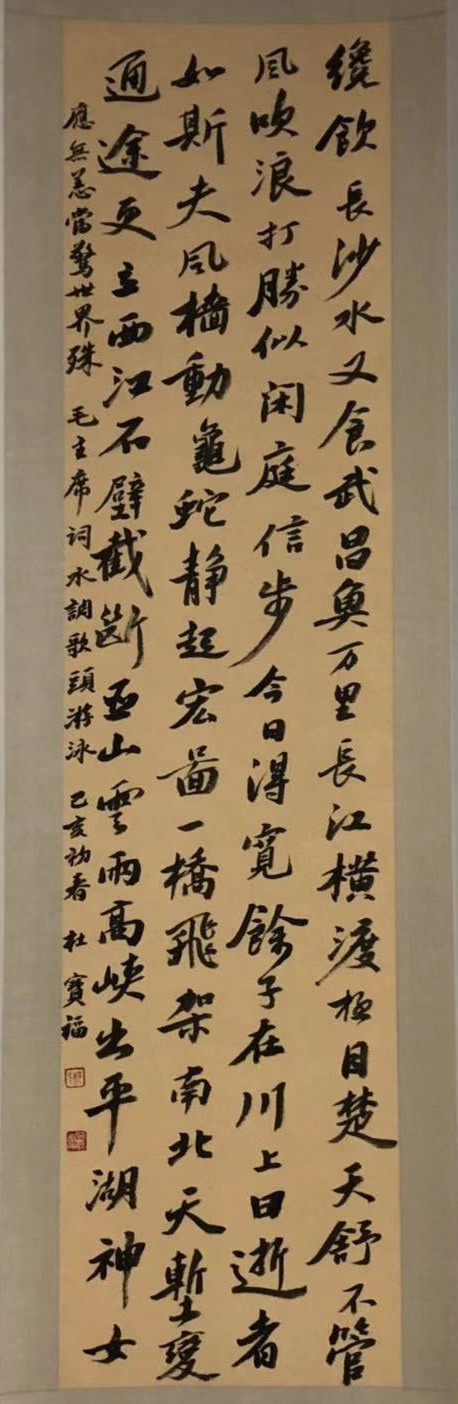 纔飲長沙水又食武昌魚万里長江橫渡極目楚天舒不管
風吹浪打勝似闲庭信步今日得寬餘子在川上曰逝者
如斯夫風檣動龜蛇靜起宏啚一橋飛架南北天塹變
通途更立西江石壁截斷巫山雲雨高峽出平湖神女
應無恙當驚世界殊 毛主席詞水調歌頭游泳 己亥初春 杜寶福